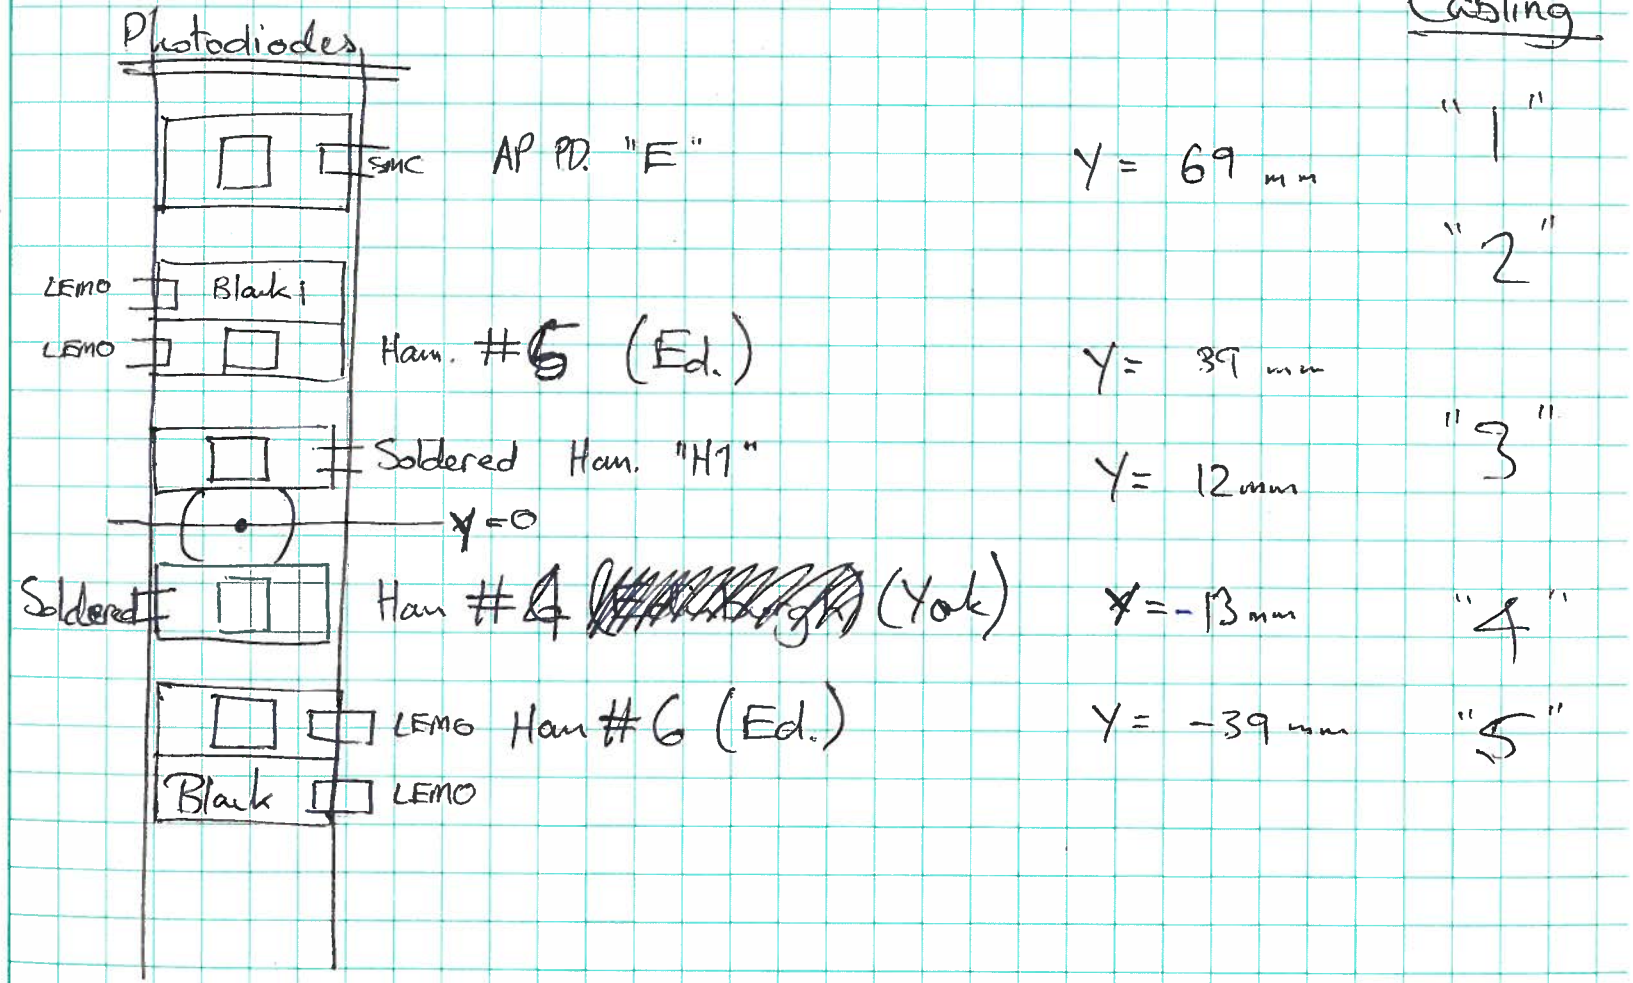 Photodiodes
Cabling
SMC AP PD. "E" Y = 69 mm "1"
"2"
LEMO Black
LEMO Ham. #5 (Ed.) Y = 39 mm
Soldered Ham. "H1" Y = 12 mm "3"
Y=0
Soldered Ham #4 (York) Y = -13 mm "4"
LEMO Ham #6 (Ed.) Y = -39 mm "5"
Black LEMO